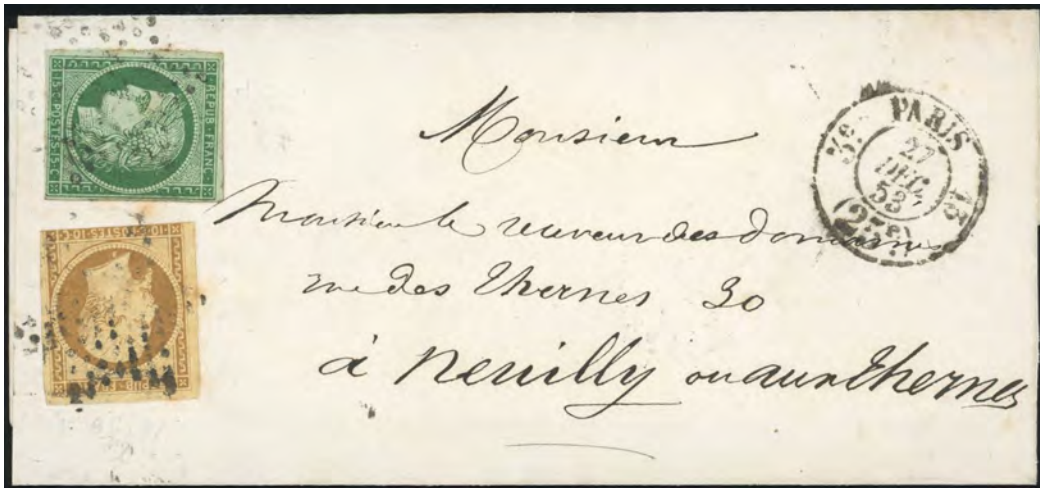 15·C·POSTES·15·C
REPUB·FRANC·
10·C·POSTES·10·C
PARIS
3e 13
27
DEC.
53
(23e)
Monsieur
Monsieur le receveur des domaines
rue des Thernes 30
à Neuilly ou aux Thernes